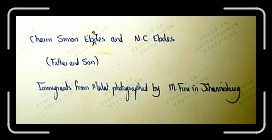 Chaim Simon Elodes and N.C Elodes
(Father and Son)
Immigrants from photographed by M. Fine in Johannesburg